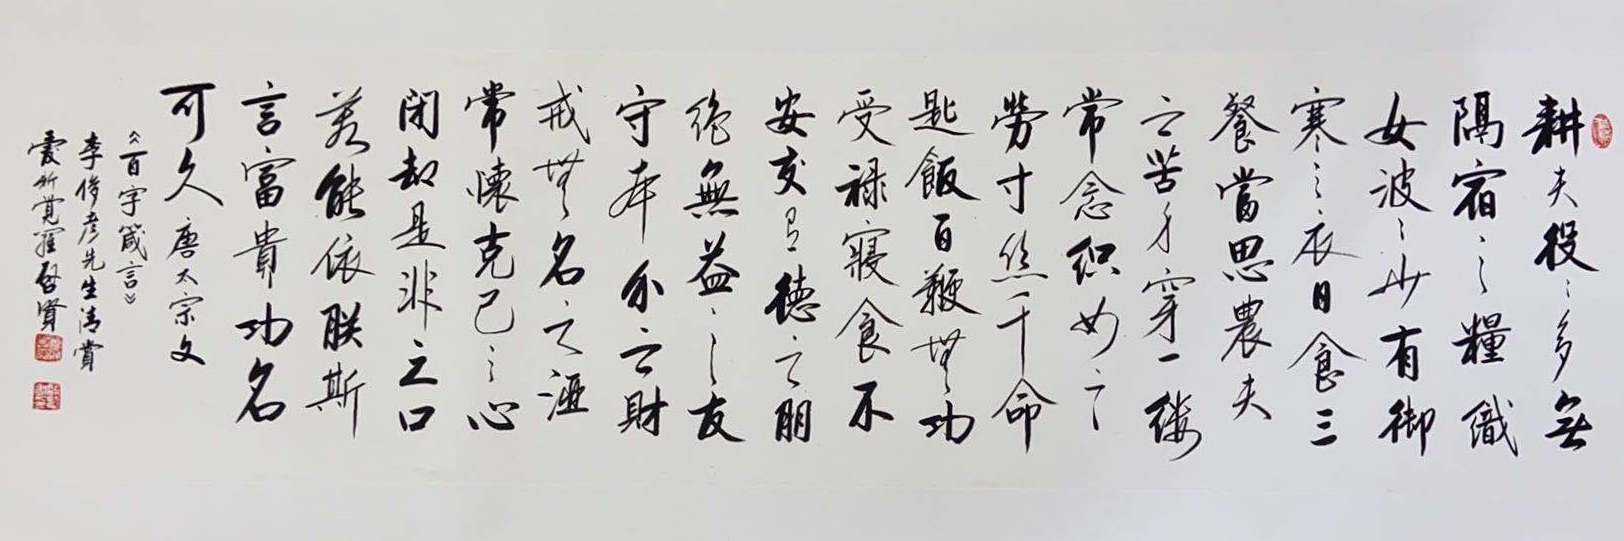 耕夫役〻多無
隔宿之糧織
女波〻少有御
寒之衣日食三
餐當思農夫
之苦身穿一縷
常念織女之
勞寸絲千命
匙飯百鞭無功
受祿寢食不
安交有德之朋
絕無益之友
守本分之財
戒無名之酒
常懷克己之心
閉却是非之口
若能依朕斯
言富貴功名
可久 唐太宗文
《百字箴言》
李俊彥先生清賞
愛新覺羅啓賢